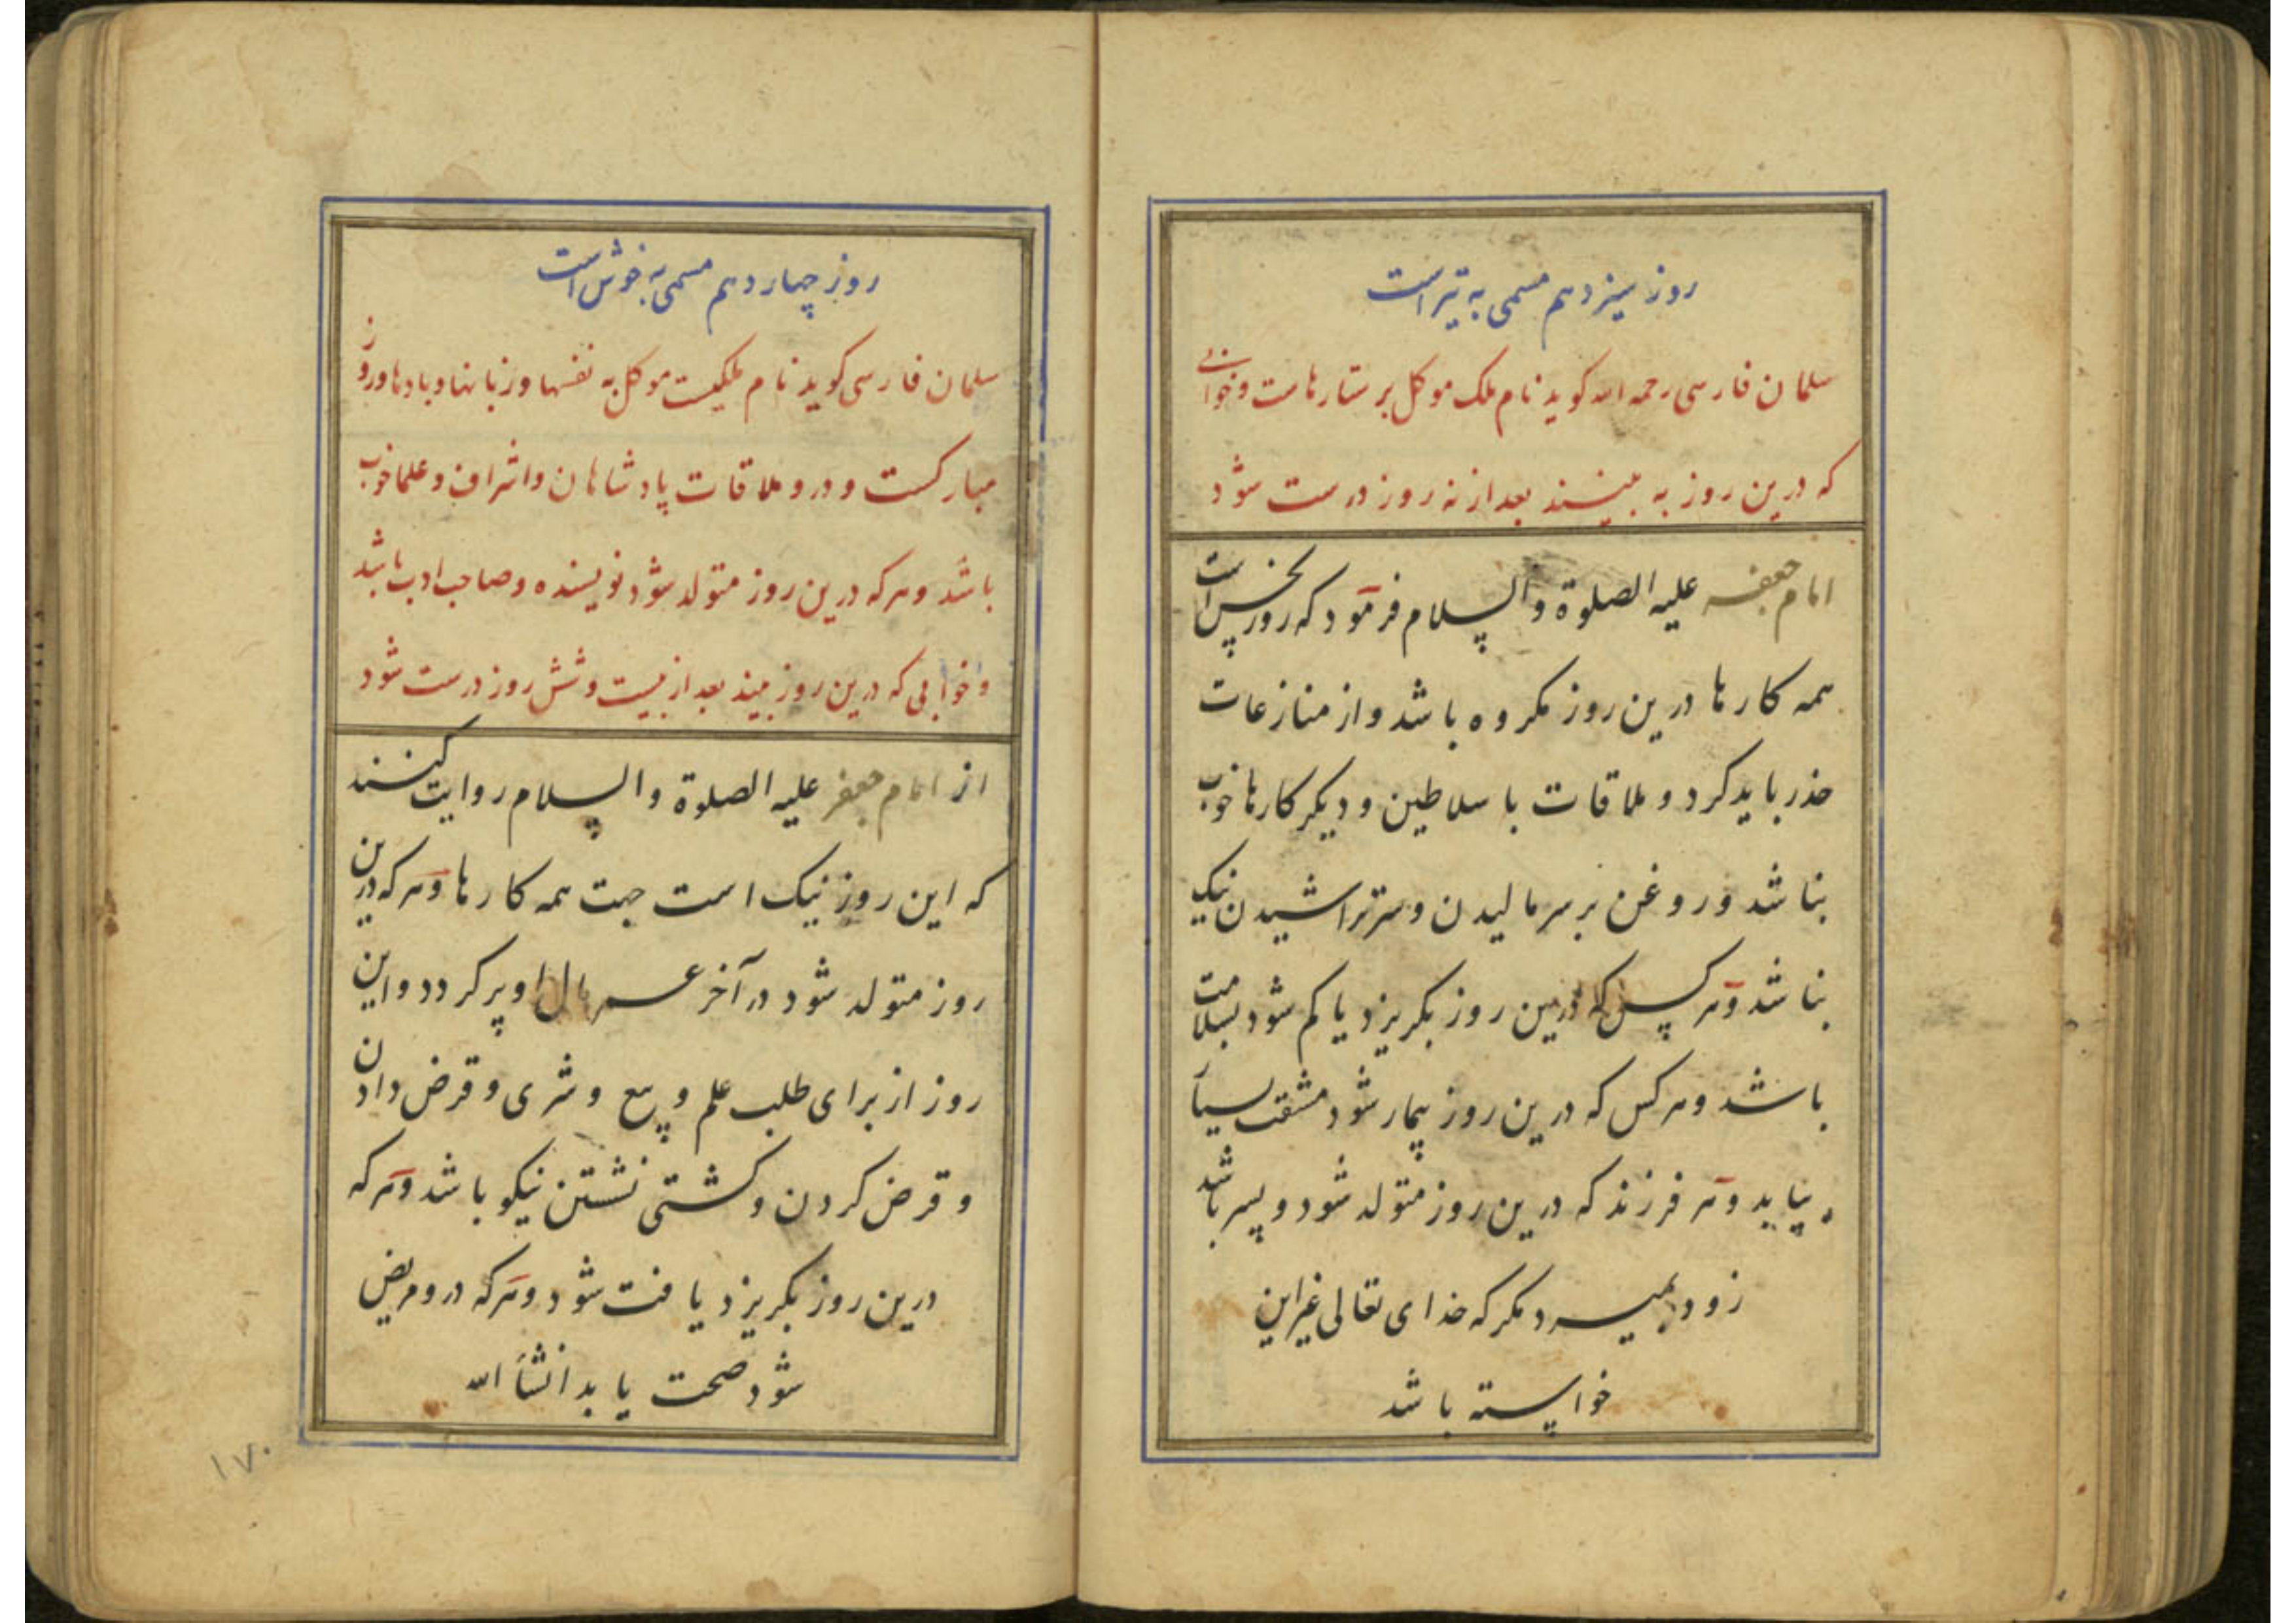 روز سیزدهم مسمی به تیر است
سلمان فارسی رحمه الله کوید نام ملک موکل بر ستارهاست وخوابی
که درین روز به بینند بعد از نه روز درست شود
امام جعفر علیه الصلوة والسلام فرمود که روز نحس است
همه کارها درین روز مکروه باشد واز منازعات
حذر باید کرد و ملاقات با سلاطین و دیکر کارها خوب
نباشد وروغن بر سر مالیدن و سر تراشیدن نیک
نباشد وهر کس که درین روز بکریزد یا کم شود بسلامت
باشد وهر کس که درین روز بیمار شود مشقت بسیار
بیاید وهر فرزند که درین روز متولد شود و پسر باشد
زود بمیرد مکر که خدای تعالی غیر این
خواسته باشد
روز چهاردهم مسمی به خوش است
سلمان فارسی کوید نام ملکیست موکل به نفسها وزبانها وبادها وروز
مبارکست و درو ملاقات پادشاهان واشراف وعلما خوب
باشد وهر که درین روز متولد شود نویسنده وصاحب ادب باشد
وخوابی که درین روز بیند بعد از بیست وشش روز درست شود
از امام جعفر علیه الصلوة والسلام روایت کنند
که این روز نیک است جهت همه کارها وهر که درین
روز متولد شود در آخر عمر مال او پر کردد واین
روز از برای طلب علم و بیع و شری و قرض دادن
و قرض کردن و کشتی نشستن نیکو باشد وهر که
درین روز بکریزد یافت شود وهر که درو مریض
شود صحت یابد انشاء الله
۱۷۰